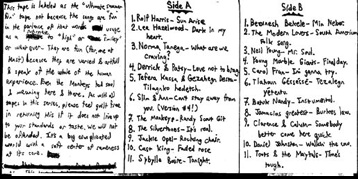 This tape is labeled as the "ultimate
tape not because the songs are fun
in the
"hips" or "
or whatever. They are fun (for me at
least) because they are varied & artful
& speak of the whole of the human
experience. Even the Monkey has soul
& meaning here & there. As with all
tapes in this series, please feel free
in returning this if it does not live up
to your standards or taste. We will not
be offended. It's a big complicated
world with a soft center of randomness
at its core.
Side A
1. Rolf Harris - Sun Arise
2. Lee Hazelwood - Dark in my
heart.
3. Norma Tanega - What are we
craving?
4. Derrick & Patsy - Love not to brag
5. Tefera Kassa & Gezahegn
Tilanbo hadetch.
6. Slim & Ann - Can't stay away from
you (Version #4!)
7. The Monkeys - Randy Scouse Git
8. The Silvertones - It's real.
9. Jackie Opel - Rocking chair
10. Cass King - Faded rose
11. Sybille Baier - Tonight.
Side B
1. Bezunesh Bekele - Min Nebar
2. The Modern Lovers - South American
folk song.
3. Neil Young - Mr. Soul
4. Young Marble Giants - Finalday.
5. Carol Fran - I'm gonna try.
6. Tilahun Gessesse - Yezalegn
yetenu.
7. Bembe Nandy - Instrumental.
8. Jamaica's greatest - Burden low.
9. Clarence & Calvin - Somebody
better come here quick
10. Daniel Johnston - Walking the cow.
11. Toots & the Maytals - Time's
tough.